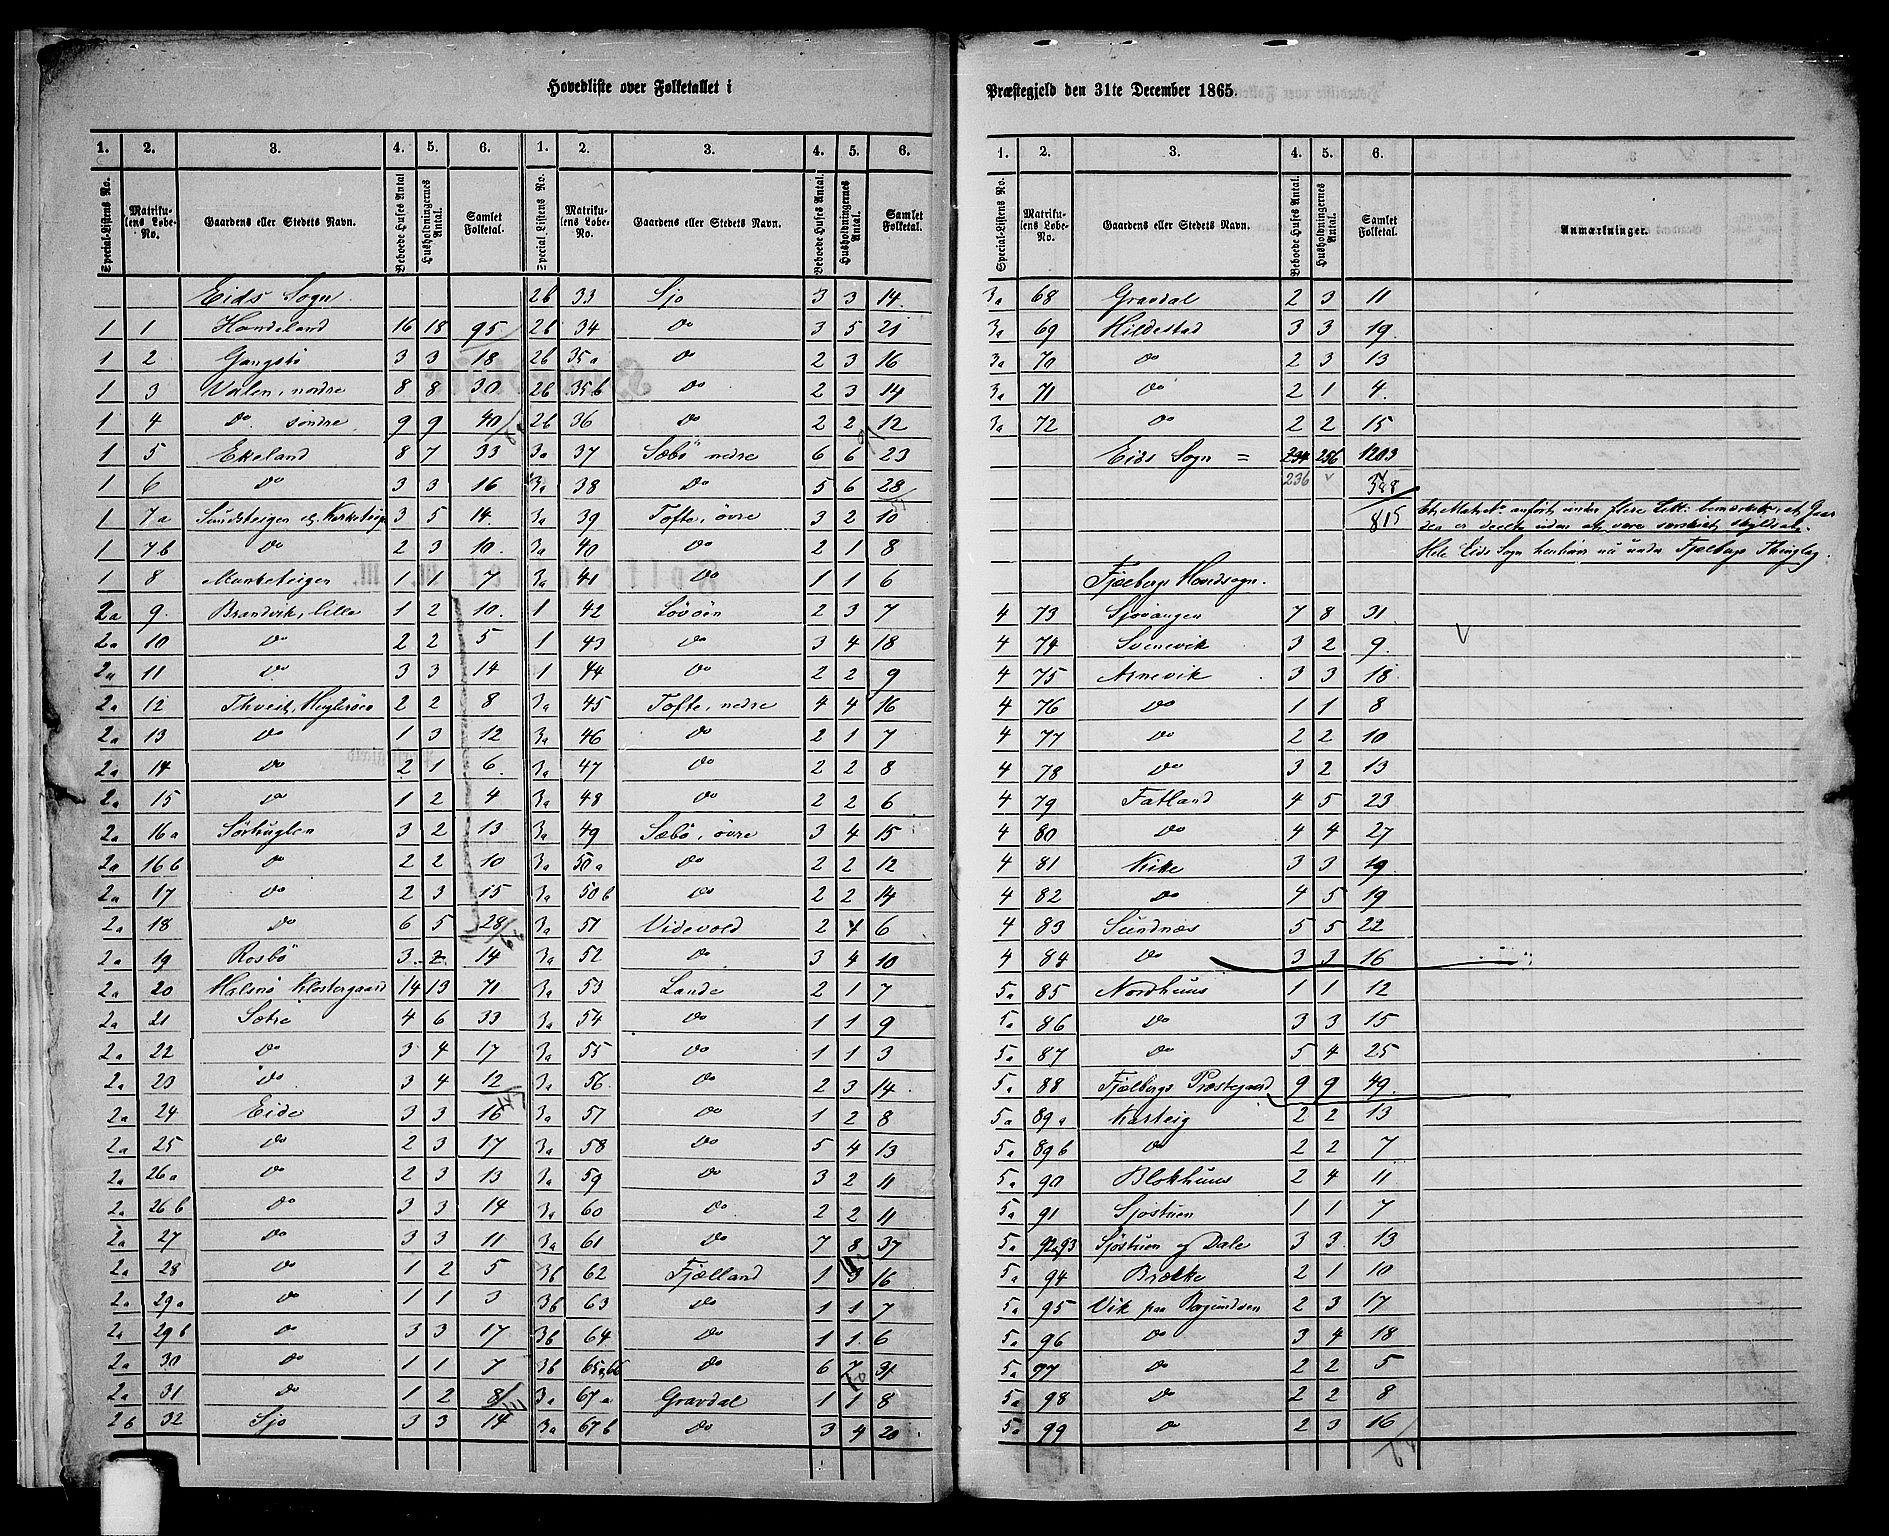 Hovedliste over Folketallet i
1. 2. 3. 4. 5. 6. 1. 2. 3. 4. 5. 6.
Special-Listens No. Matrikulens Løbe-No. Gaardens eller Stedets Navn. Beboede Huses Antal Husholdningernes Antal. Samlet Folketal. Special Listens No. Matrikulens Løbe-No. Gaardens eller Stedets Navn. Beboede Huses Antal. Husholdningernes Antal. Samlet Folketal.
Eids Sogn.
1 1 16 18 95
1 2 Gangstø 3 3 18
1 3 Valen, nordre 8 8 30
1 4 Do søndre 9 9 40
1 5 Ekeland 8 7 33
1 6 Do 3 3 16
1 7a 3 5 14.
1 7b Do 2 3 10.
1 8 Munketeigen 1 1 7
2a 9. Brandvik, lille 1 2 10.
2a 10 Do 2 2 5
2a 11 Do 3 3 14
2a 12 Thveit, 2 2 8
2a 13 Do 1 3 12
2a 14 Do 2 1 6.
2a 15 Do 1 2 4
2a 16a Sørhuglen 3 2 13
2a 16b Do 2 2 10
2a 17 Do 2 3 15
2a 18 Do 6 5 28
2a 19 Rosbø 3. 2. 14
2a 20 Halsnø Klostergaard 14 13 71
2a 21 Sætre 4 6 33
2a 22 Do 3 4 17
2a 20 Do 3 4 12
2a 24 Eide 3 3 16
2a 25 Do 2 3 17
2a 26a Do 2 3 13
2a 26b Do 3 3 14
2a 27 Do 3 3 11
2a 28 Do 1 2 5
2a 29a Do 1 1 3
2a 29b Do 3 3 17
2a 30 Do 1 1 7
2a 31 Do 1 2 8
2b 32 Sjo 3 3 14
2b 33 Sjo 3 3 14.
2b 34 Do 3 5 21
2b 35a Do 2 3 16
2b 35b Do 2 3 14
2b 36 Do 2 2 12
3a 37 Sæbø nedre 6 6 23
3a 38 Do 5 6 28
3a 39 Tofte, øvre 3 2 10
3a 40 Do 2 1 8
3a 41 Do 1 1 6
1 42 2 3 7
1 43 Do 3 4 18
1 44 Do 2 2 9
3a 45 Tofte, nedre 4 4 16
3a 46 Do 2 1 7
3a 47 Do 2 2 8
3a 48 Do 2 2 6
3a 49 Sæbø, øvre 3 4 15
3a 50a Do 2 2 12
3a 50b Do 2 2 14
3a 51 Videvold 2 4 6
3a 52 Do 3 4 10
3a 53 Lande 2 1 7
3a 54 Do 1 1 9
3a 55 Do 1 1 3
3a 56. Do 2 3 14.
3a 57 Do 1 2 8
3a 58 Do 5 4 13
3a 59 Do 3 2 11
3a 60 Do 2 2 11
3a 61 Do 7 8 37
3b 62 Fjælland 1 3 16
3b 63 Do 1 1 7
3b 64 Do 1 1 6
3b 65a,66 Do 6 7 31
3a 67a Gravdal 1 1 8
3a 67b Do 3 4 20
Præstegjeld den 31te December 1865.
1. 2. 3. 4. 5. 6.
Special-Listens No. Matrikulens Løbe-No. Gaardens eller Stedets Navn. Beboede Huses Antal. Husholdningernes Antal. Samlet Folketal. Anmærkninger.
3a 68 Gravdal 2 3 11
3a 69 Hildestad 3 3 19.
3a 70 Do 2 3 13
3a 71 Do 2 1 4.
3a 72 Do 2 2 15
Eids Sogn = 234 256 1203
236
815
Hele Eids Sogn henhører nu under Fjælbergs Thinglag.
Fjælbergs Hovedsogn.
4 73 Sjovangen 7 8 31
4 74 Svenevik 3 2 9.
4 75 Arnevik 3 3 18.
4 76 Do 1 1 8
4 77 Do 2 2 10
4 78 Do 3 2 13
4 79 Fatland 4 5 23
4 80 Do 4 4 27
4 81 Kike 3 3 19
4 82 Do 4 5 19
4 83 Sundnæs 5 5 22
4 84 Do 3 3 16
5a 85 Nordhuus 1 1 12
5a 86 Do 3 3 15
5a 87 Do 5 4 25
5a 88 Fjælbergs Præstegaard 9 9 49.
5a 89a 2 2 13
5a 89b Do 2 2 7
5a 90 Blokhuus 2 4 11
5a 91 Sjostuen 1 1 7
5a 92,93 Sjöstuen og Dale 3 3 13
5a 94 Brække 2 1 10
5a 95 Vik paa Borgundøen 2 3 17
5a 96 Do 3 4 18
5a 97 Do 2 2 5
5a 98 Do 2 2 8
5a 99 Do 2 3 16